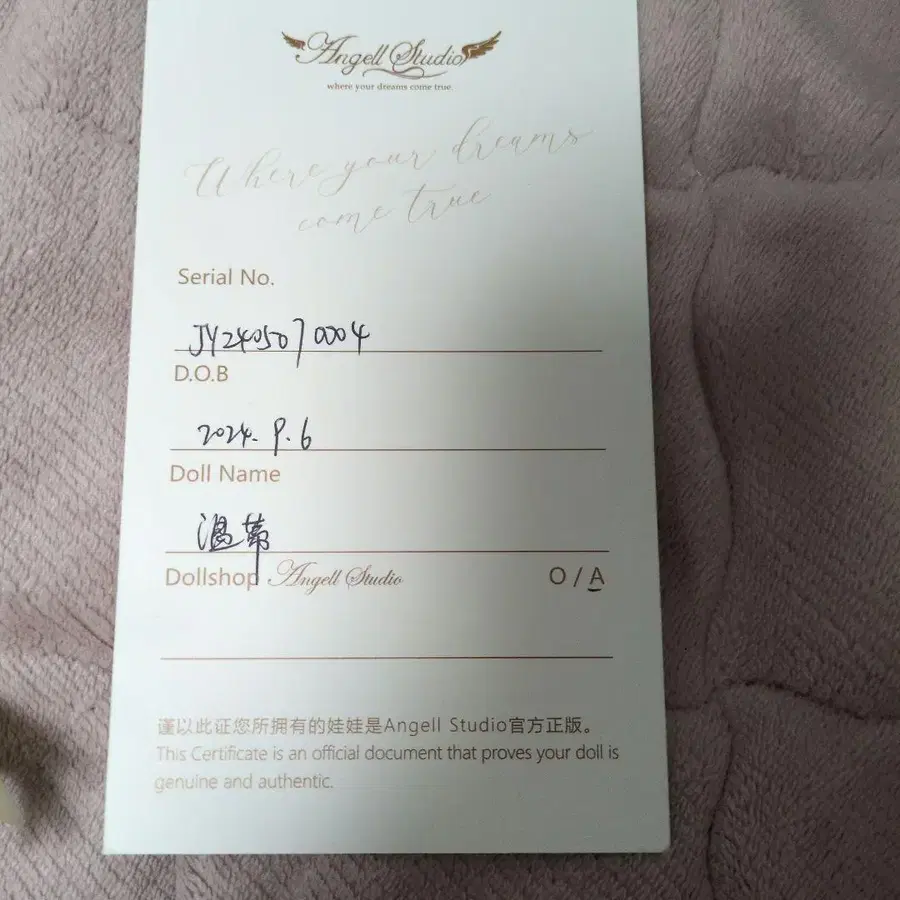 Angell Studio
where your dreams come true.
Where your dreams
come true
Serial No.
JY2405070004
D.O.B
2024. 9. 6
Doll Name
温蒂
Dollshop Angell Studio O / A
谨以此证您所拥有的娃娃是Angell Studio官方正版。
This Certificate is an official document that proves your doll is
genuine and authentic.